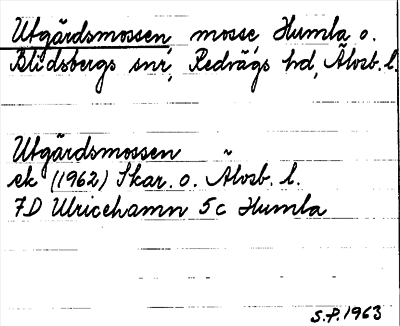 Utgärdsmossen mosse Humla o.
Blidsbergs snr, Redvägs hd, Älvsb. l.
Utgärdsmossen ~
ek (1962) Skar. o. Älvsb. l.
7D Ulricehamn 5c Humla
S.P. 1963